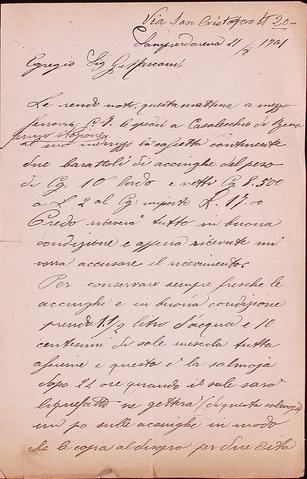 Via San Cristoforo N 20
Sampierdarena 11/7 1901
Egregio Sig.
Le rendo noto, questa mattina a mezzo
ferrovia G.V. le spedii a Casalecchio di
fermo stazione
al suo la cassetta contenente
due barattoli di acciughe del peso
di Cg. 10 lordo e netti Cg 8.500
a L 2 al Cg: importo L. 17.00
Credo riceverà tutto in buona
condizione e appena ricevuta mi
vorrà accusare il ricevimento.
Per conservare sempre fresche le
acciughe e in buona condizione
prenda 1 1/2 litro d'acqua e 10
centesimi di sale mescola tutto
assieme e questa è la salmoja
dopo 24 ore quando il sale sarà
liquefatto ne getterà (di questa salmoja)
un po sulle acciughe in modo
che le copra al disopra per due dita